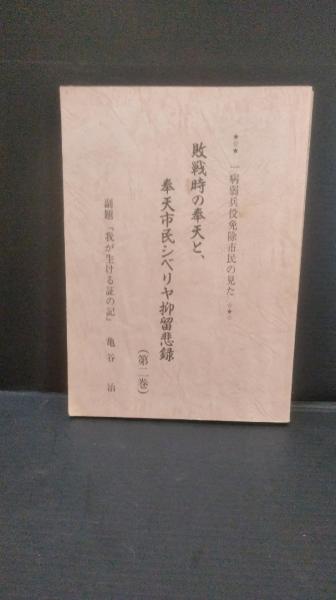 ★☆★ 一病弱兵役免除市民の見た ☆★☆
敗戦時の奉天と、
奉天市民シベリヤ抑留悲録
(第二巻)
副題「我が生ける証の記」 亀谷 治